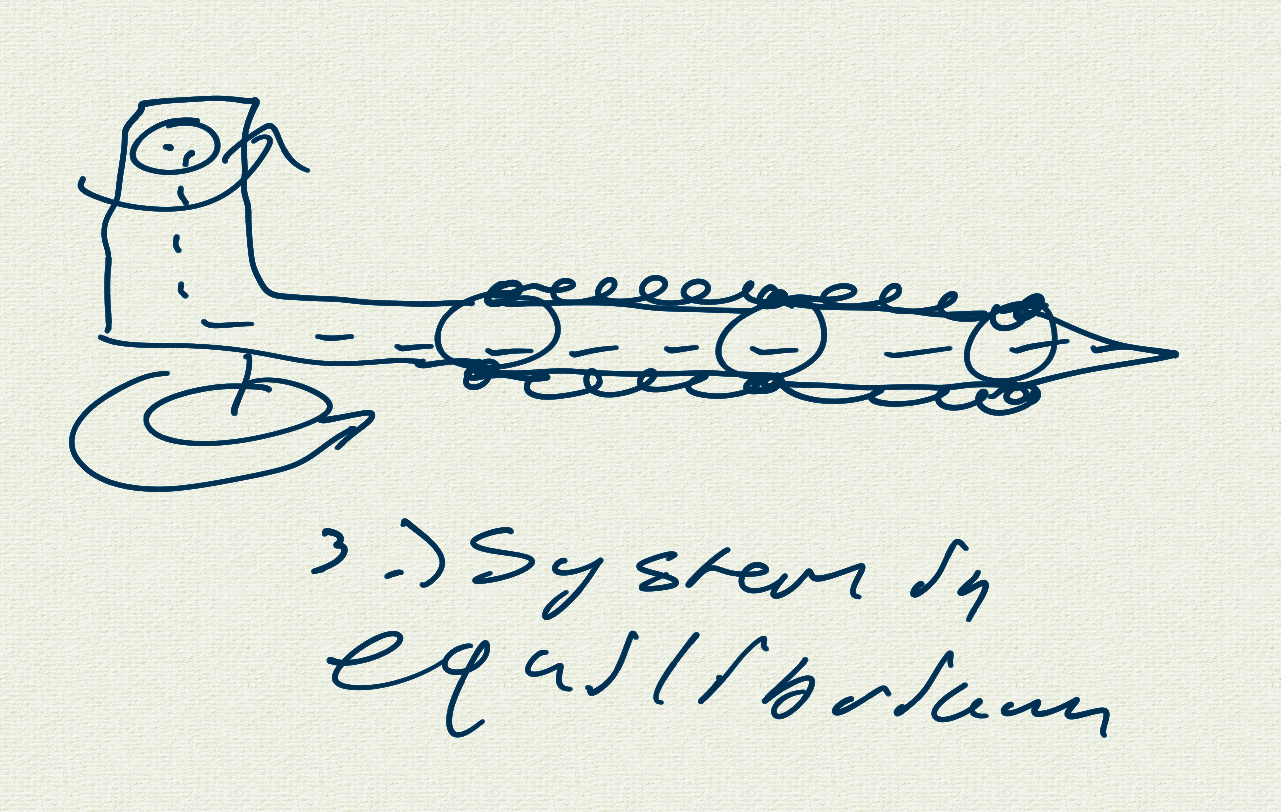 3.) System in
equilibrium